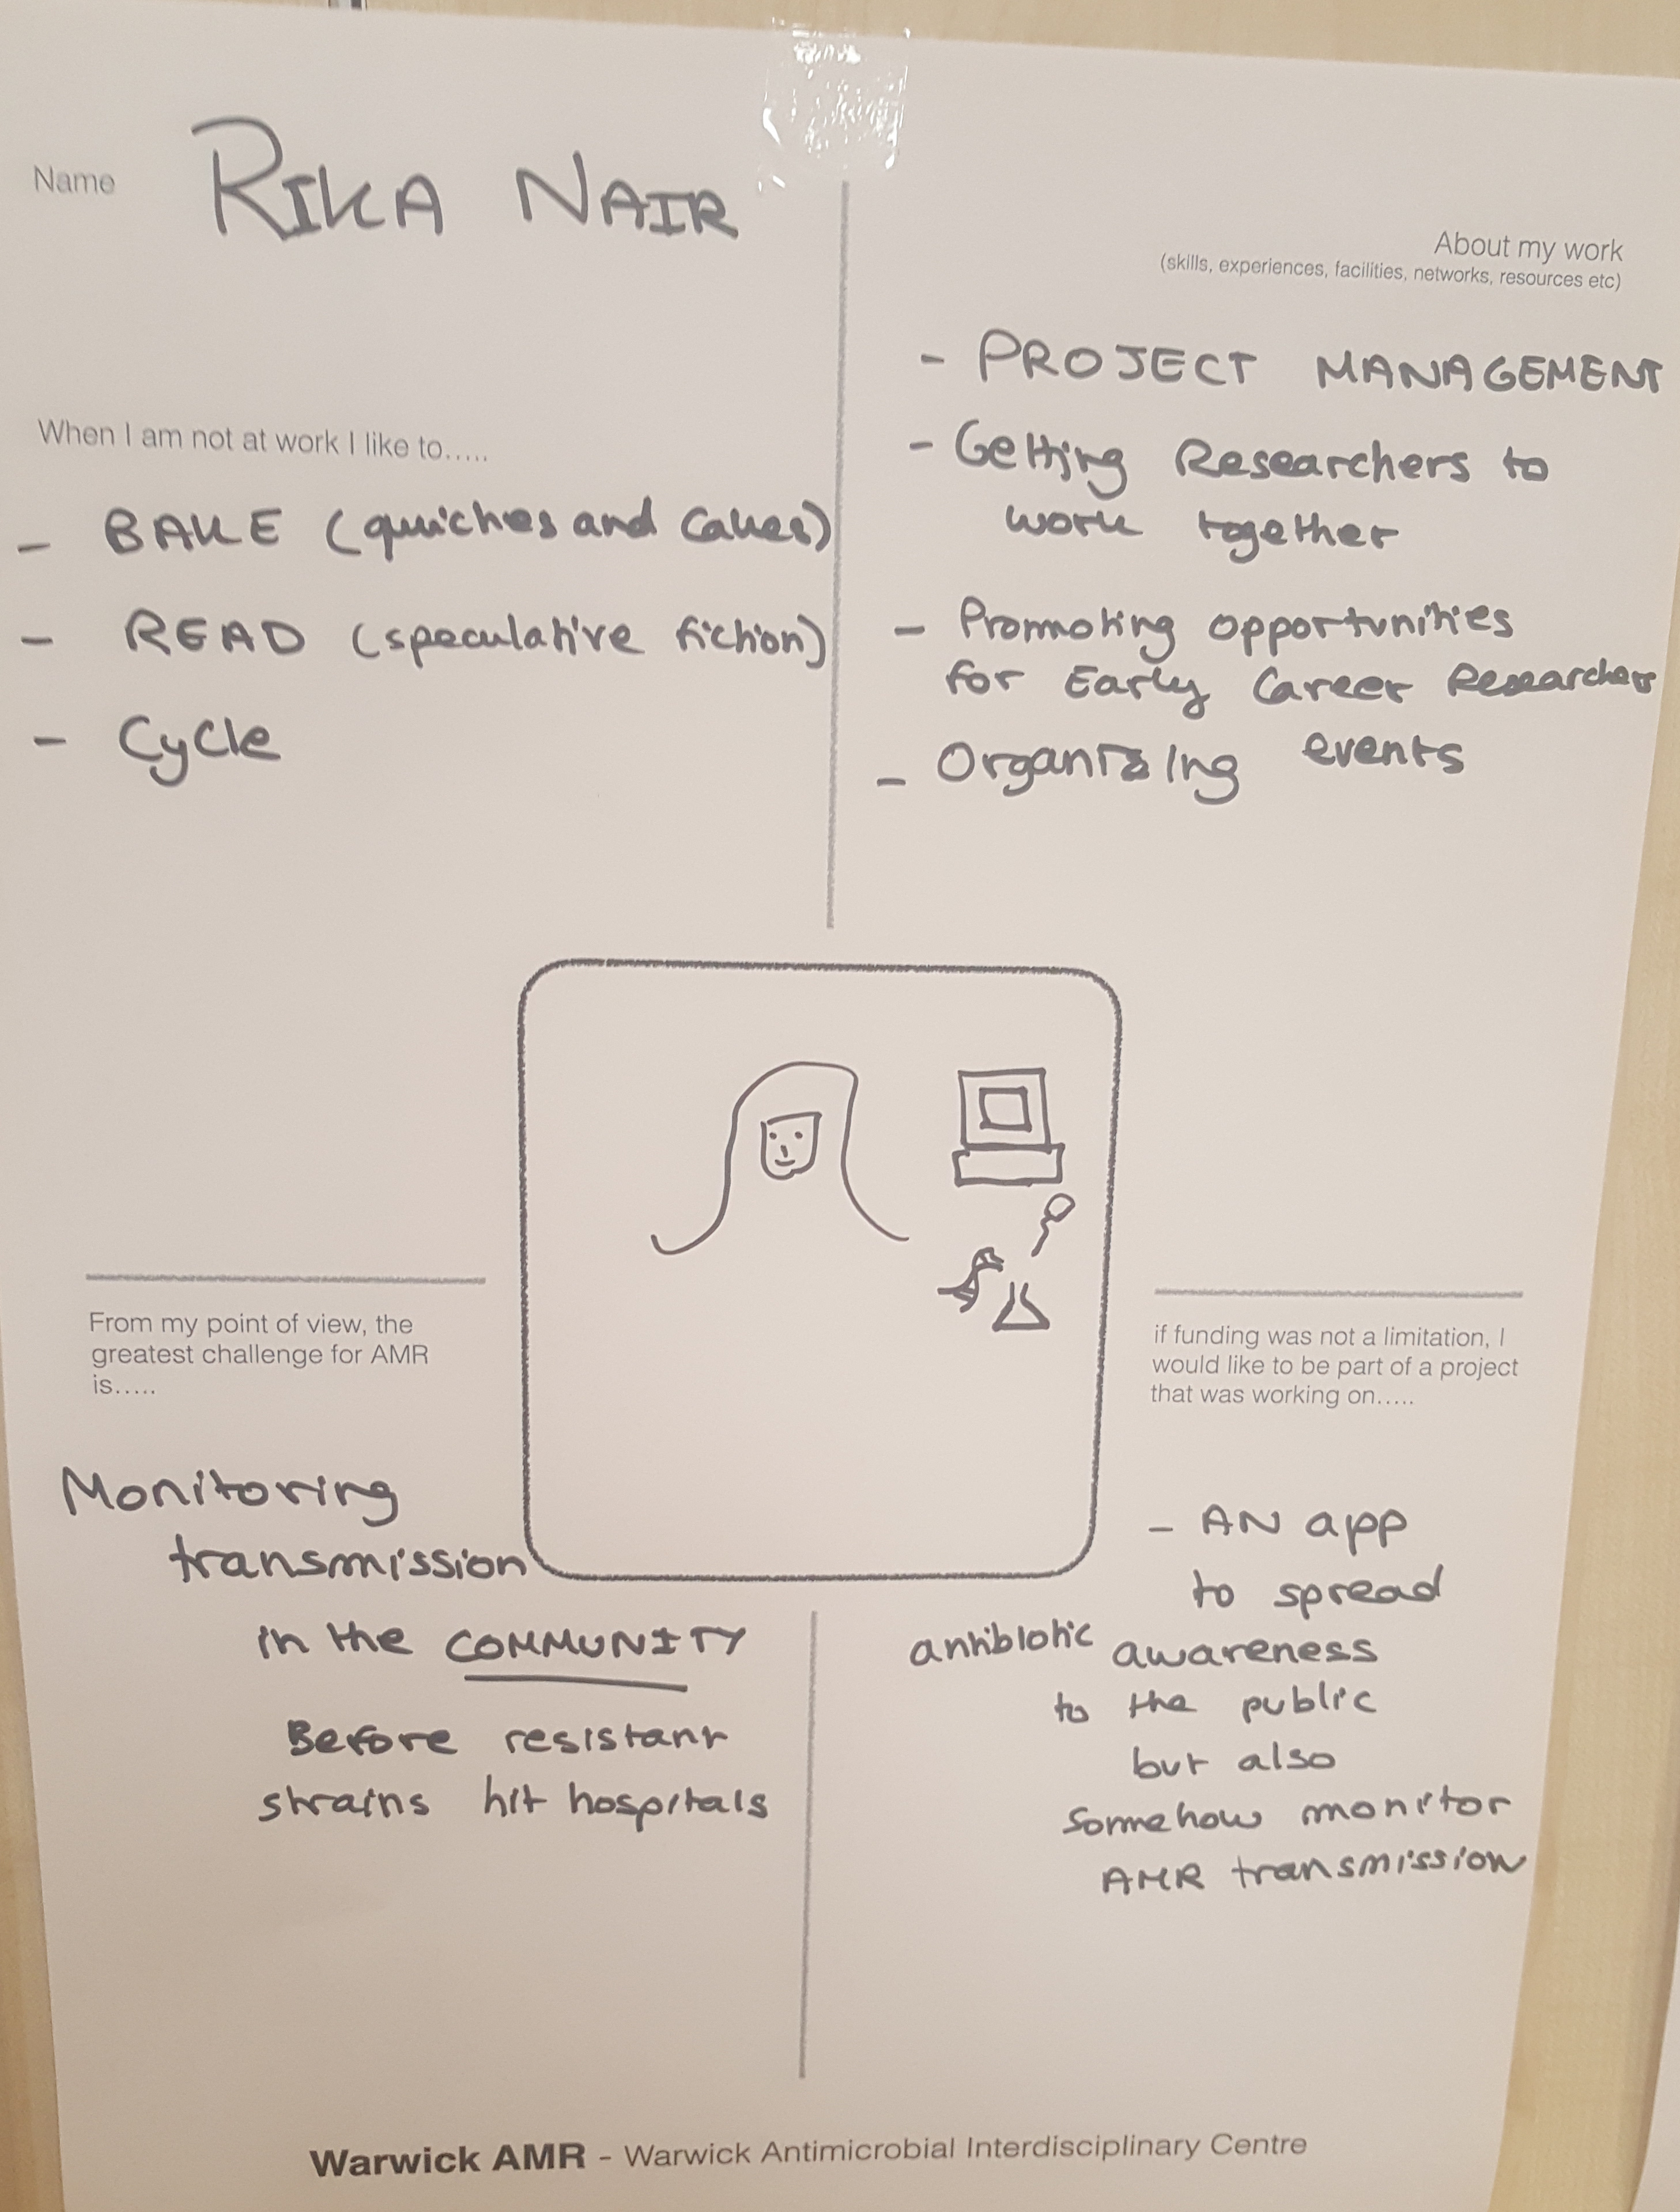 Name RIKA NAIR
When I am not at work I like to.....
- BAKE (quiches and cakes)
- READ (speculative fiction)
- Cycle
About my work
(skills, experiences, facilities, networks, resources etc)
- PROJECT MANAGEMENT
- Getting Researchers to
work together
- Promoting opportunities
for Early Career Researchers
- Organising events
From my point of view, the
greatest challenge for AMR
is.....
Monitoring
transmission
in the COMMUNITY
Before resistant
strains hit hospitals
if funding was not a limitation, I
would like to be part of a project
that was working on.....
- AN app
to spread
antibiotic awareness
to the public
but also
somehow monitor
AMR transmission
Warwick AMR - Warwick Antimicrobial Interdisciplinary Centre